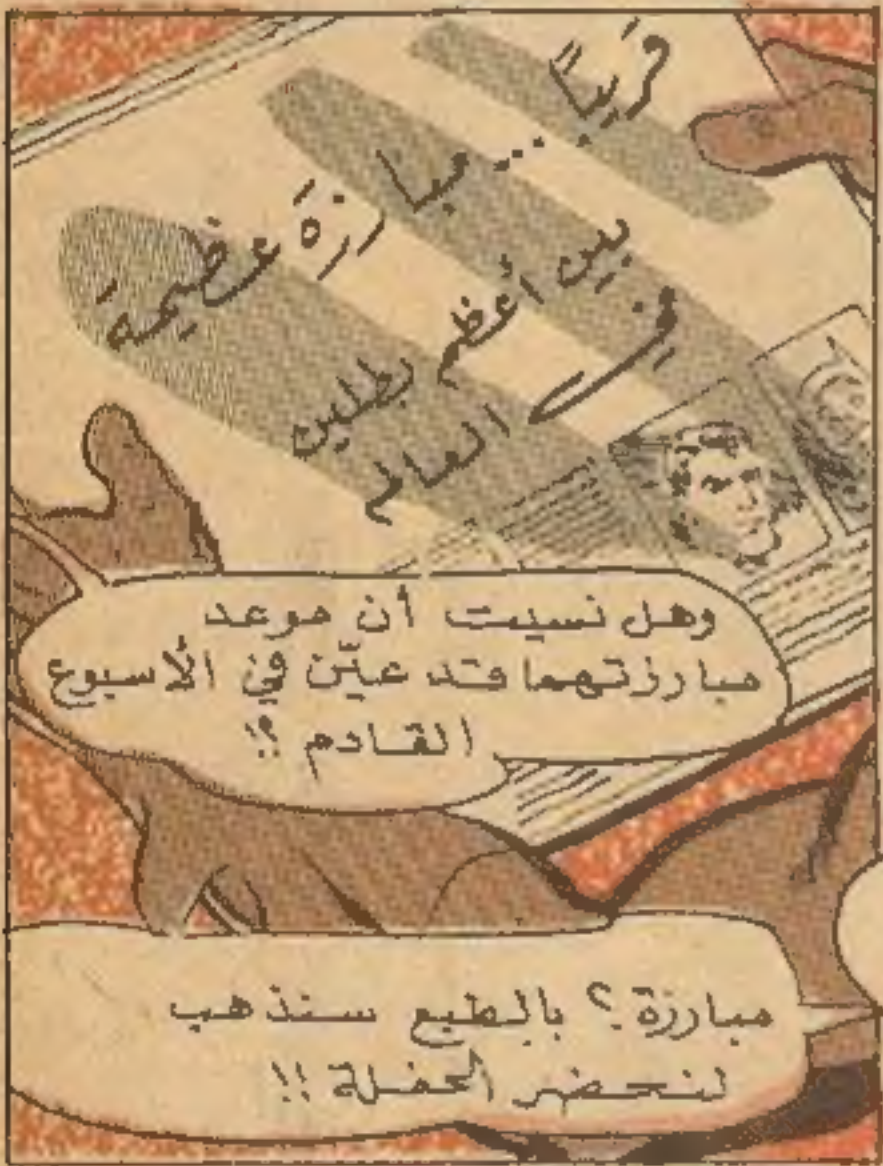 قريباً
... مبارزة عظيمة
بين أعظم بطلين
في العالم
وهل نسيت أن موعد
مبارزتهما قد عيّن في الأسبوع
القادم ؟!
مبارزة ؟ بالطبع سنذهب
لنحضر الحفلة !!